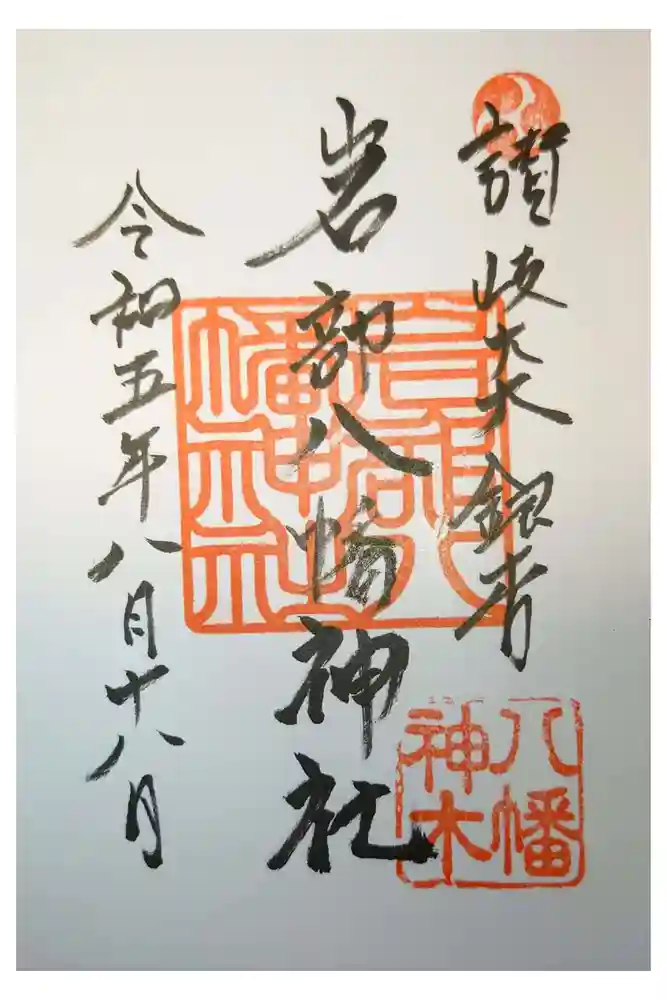 讃岐大大銀杏
岩部八幡神社
令和五年八月十八日
八幡
神木